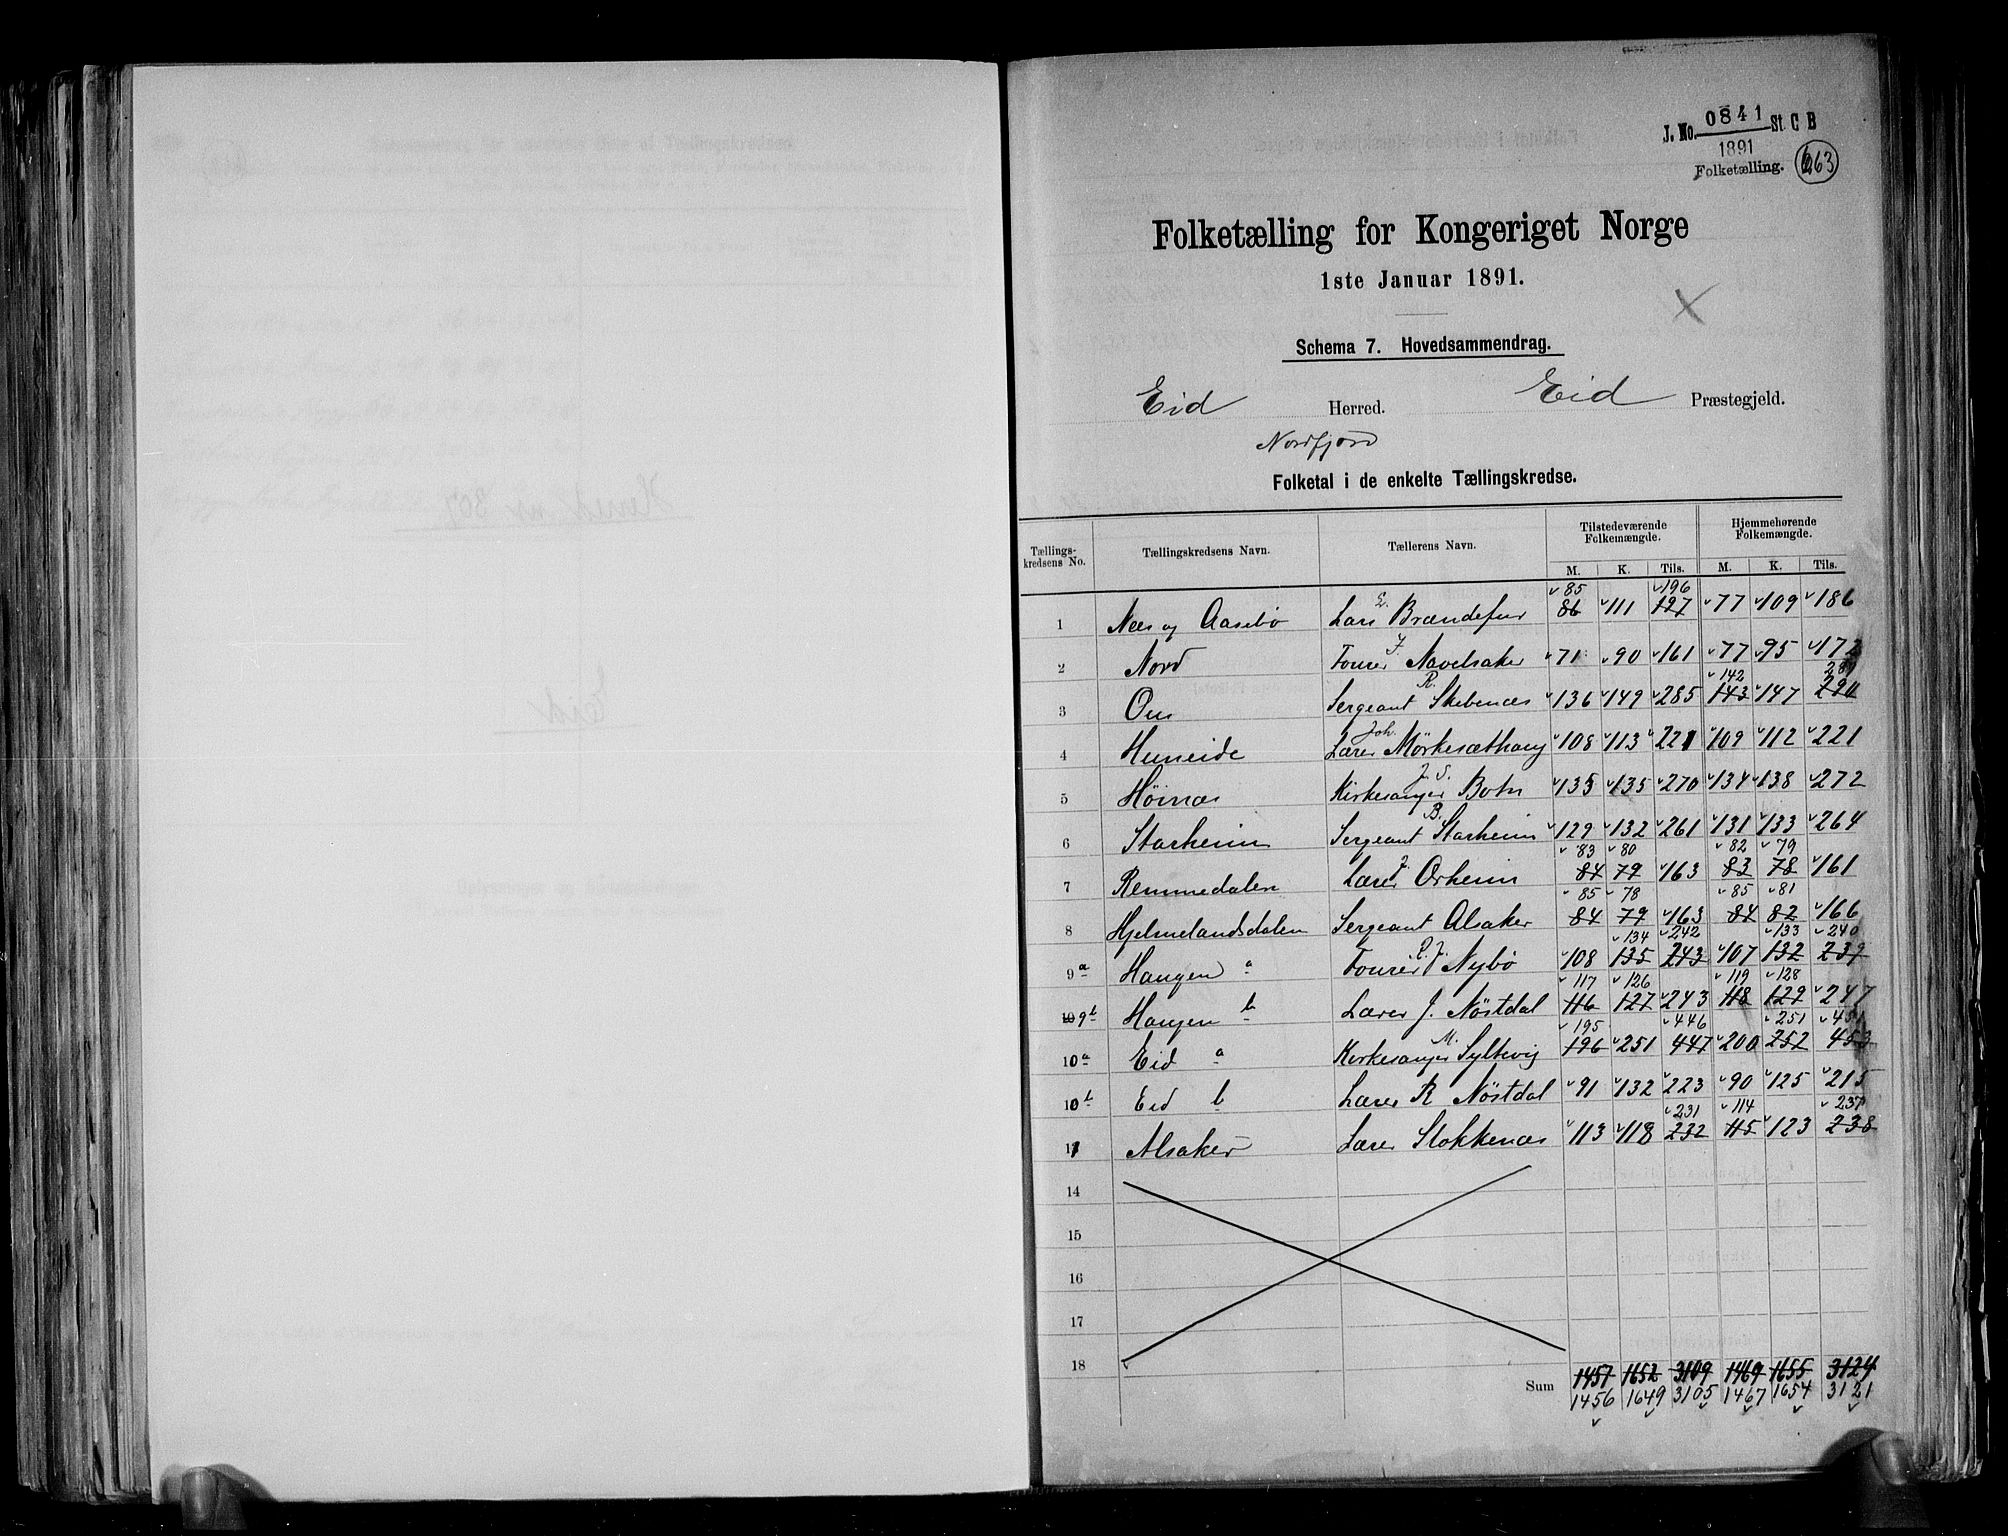 J. No. 0841 St. C B
1891
Folketælling. 263
Folketælling for Kongeriget Norge
1ste Januar 1891.
Schema 7. Hovedsammendrag.
Eid Herred. Eid Præstegjeld.
Nordfjord
Folketal i de enkelte Tællingskredse.
Tællings-kredsens No. Tællingskredsens Navn. Tællerens Navn. Tilstedeværende Folkemængde. Hjemmehørende Folkemængde.
M. K. Tils. M. K. Tils.
85 196
1 Næs og Aasebø Lars E. Brændefur 86 111 197 77 109 186
2 Nord Fourer J. Navelsaker 71 90 161 77 95 172
142 289
3 Os Sergeant R. Skebenæs 136 149 285 143 147 290
4 Humeide Lærer Joh. Mörkesæthaug 108 113 221 109 112 221
5 Höinæs Kirkesanger J. S. Botn 135 135 270 134 138 272
6 Starheim Sergeant B. Starheim 129 132 261 131 133 264
83 80 82 79
7 Remmedalen Lærer J. Orheim 84 79 163 83 78 161
85 78 85 81
8 Hjelmelandsdalen Sergeant Alsaker 84 79 163 84 82 166
134 242 133 240
9a Haugen a Fourer P. J. Nybø 108 135 243 107 132 239
117 126 119 128
10 9b Haugen b Lærer J. Nøstdal 116 127 243 118 129 247
195 446 251 451
10a Eid a Kirkesanger M. Syltevig 196 251 447 200 252 453
10b Eid b Lærer R Nøstdal 91 132 223 90 125 215
231 114 237
11 Alsaker Lærer Stokkenæs 113 118 232 115 123 238
14
15
16
17
18
Sum 1457 1652 3109 1469 1655 3124
1456 1649 3105 1467 1654 3121
Herred nr 307
Eid